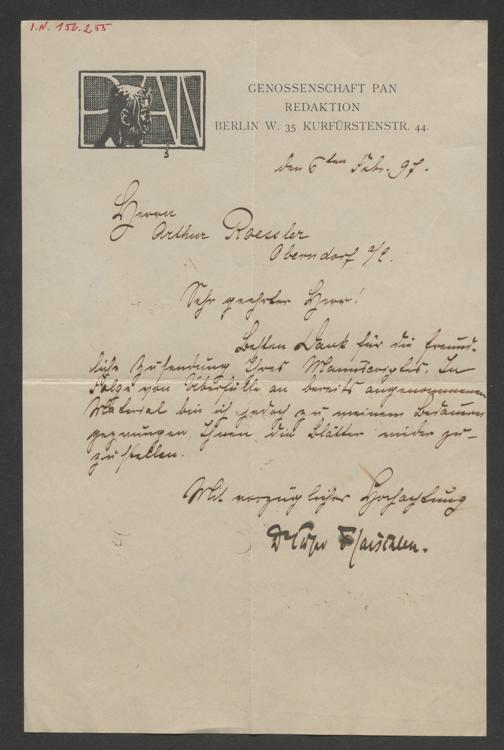 I.N. 156.255
PAN
GENOSSENSCHAFT PAN
REDAKTION
BERLIN W. 35 KURFÜRSTENSTR. 44.
den 6ten Febr. 97.
Herrn
Arthur Roessler
Oberndorf a/L.
Sehr geehrter Herr!
Besten Dank für die freund-
liche Zusendung Ihres Manuscriptes. In
Folge von Überfülle an bereits angenommenem
Material bin ich jedoch zu meinem Bedauern
gezwungen, Ihnen die Blätter wieder zu-
zustellen.
Mit vorzüglicher Hochachtung
Dr Cäsar Flaischlen.